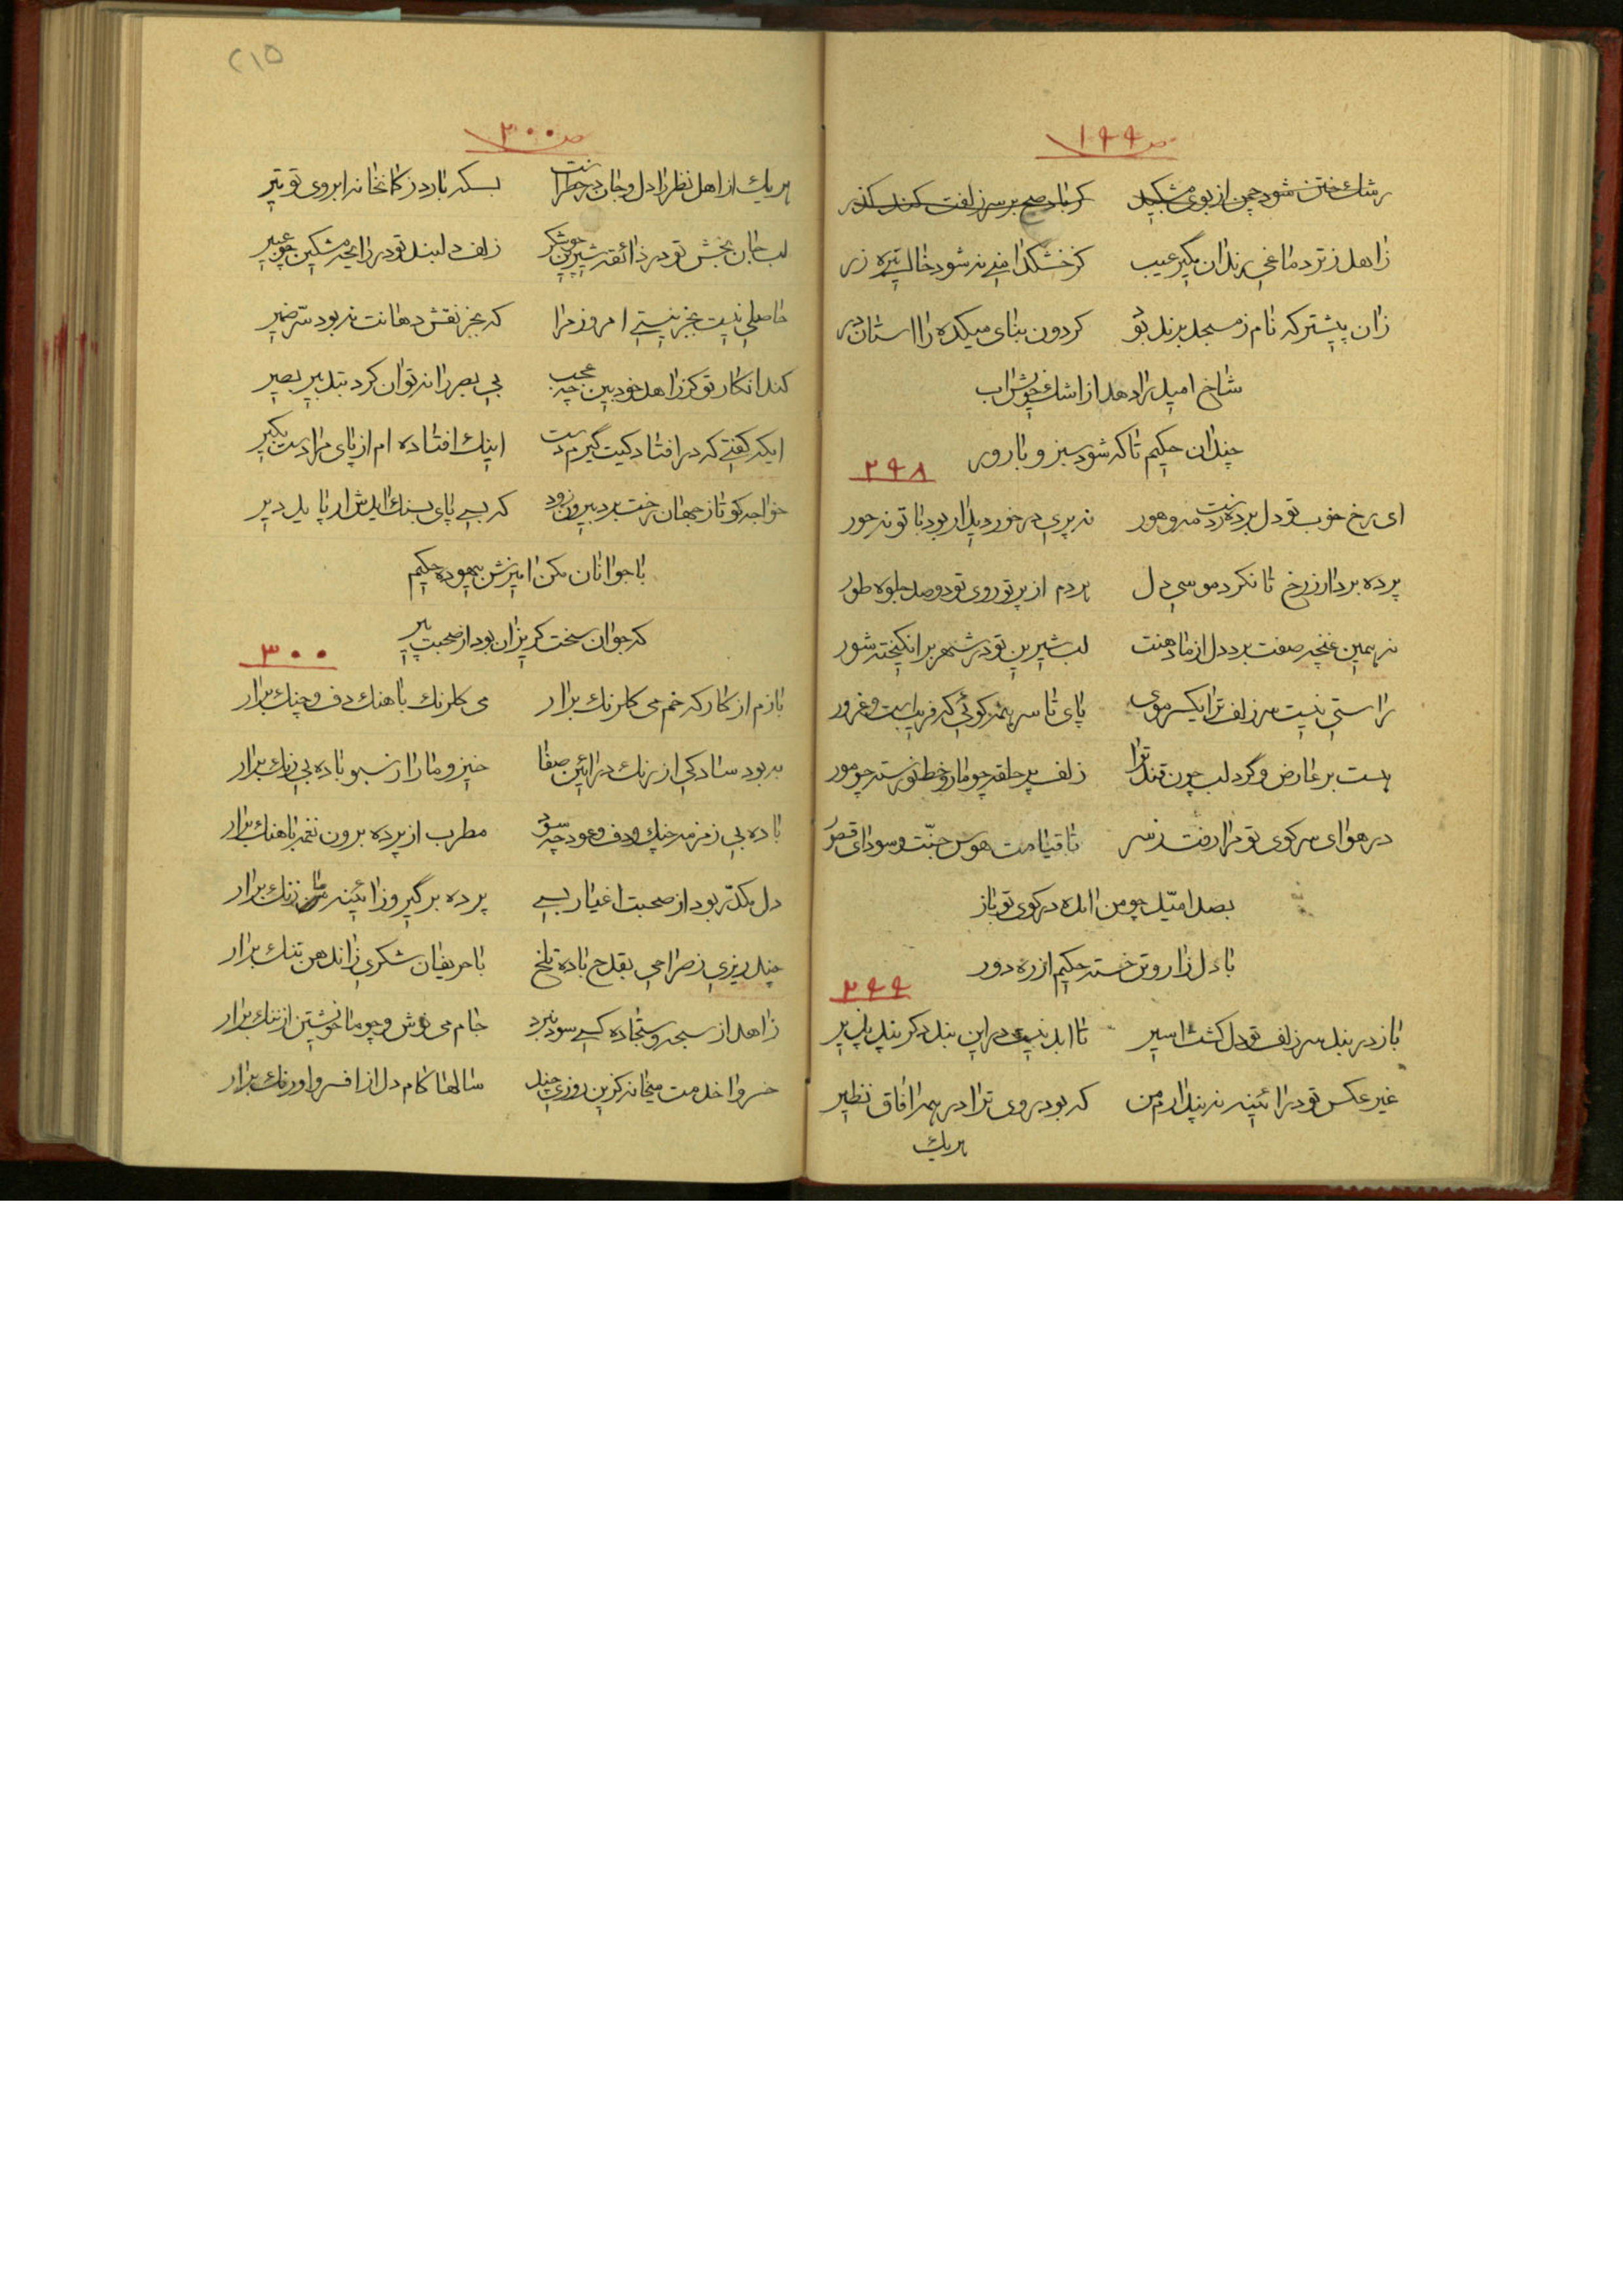 ص ١٩٩
رشك ختن شود چمن از بوی مشكبید گر باد صبح بر سر زلفت كند گذر
زاهد ز تر دماغی رندان مگیر عیب كز خشكدامنی نشود خاك تیره زر
زان پیشتر كه نام ز مسجد برند بو كردون بنای میكده را استان در
شاخ امید را دهد از اشك خویش اب
چندان حكیم تا كه شود سبز و بارور
٢٩٨
ای رخ خوب تو دل برده ز مه وهور نه پری در خور دیدار بود با تو نه حور
پرده بردار ز رخ تا نكرد موسی دل هر دم از پرتو روی تو دو صد جلوه طور
نه همین غنچه صفت برد دل از ما دهنت لب شیرین تو در شهر برانگیخته شور
راستی نیست سر زلف ترا یكسر موی پای تا سر همه كوئی كه فریبست و غرور
هست بر عارض و گرد لب چون قند ترا زلف پر حلقه چو مار و خط نورسته چو مور
در هوای سر كوی تو مرا رفت ز سر تا قیامت هوس جنّت و سودای قصور
بصد امّید چو من امده در كوی تو باز
با دل زار و تن خسته حكیم از ره دور
٢٩٩
باز در بند سر زلف تو دل كشت اسیر تا ابد نیست در این بند دكر پند پذیر
غیر عكس تو در ائینه نپندارم من كه بود روی ترا در همه افاق نظیر
هریك
٢١٥
ص ٣٠٠
هریك از اهل نظر را دل و جان در خطر است بسكه بارد ز كمانخانه ابروی تو تیر
لب جان بخش تو در ذائقه شیرین چو شكر زلف دلبند تو در رایحه مشكین چو عبیر
حاصلی نیست بجز نیستی امروز مرا كه بجز نقش دهانت نبود سرّ ضمیر
كند انكار تو كر زاهد خود بین چه عجب بی بصر را نتوان كرد بتدبیر بصیر
ایكه كفتی كه در افتادكیت گیرم دست اینك افتاده ام از پای مرا دست بگیر
خواجه كو تا ز جهان رخت برد بیرون زود كه بسی پای بسنك ایدش ار پاید دیر
با جوانان مكن امیزش بیهوده حكیم
كه جوان سخت كریزان بود از صحبت پیر
٣٠٠
بازم از كار كه خم می كلرنك برار می كلرنك باهنك دف و چنك برار
به بود سادكی از رنك در ائین صفا خیز و ما را ز سبو باده بی رنك برار
باده بی زمزمه چنك و دف و عود چه سود مطرب از پرده برون نغمه باهنك برار
دل مكدّر بود از صحبت اغیار بسی پرده برگیر و ز ائینه ما زنك برار
چند ریزی ز صراحی بقدح باده تلخ با حریفان شكری زاندهن تنك برار
زاهد از سبحه و سجّاده كسی سود نبرد جام می نوش و چو ما خویشتن از ننك برار
خسروا خدمت میخانه گزین روزی چند سالها كام دل از افسر و اورنك برار